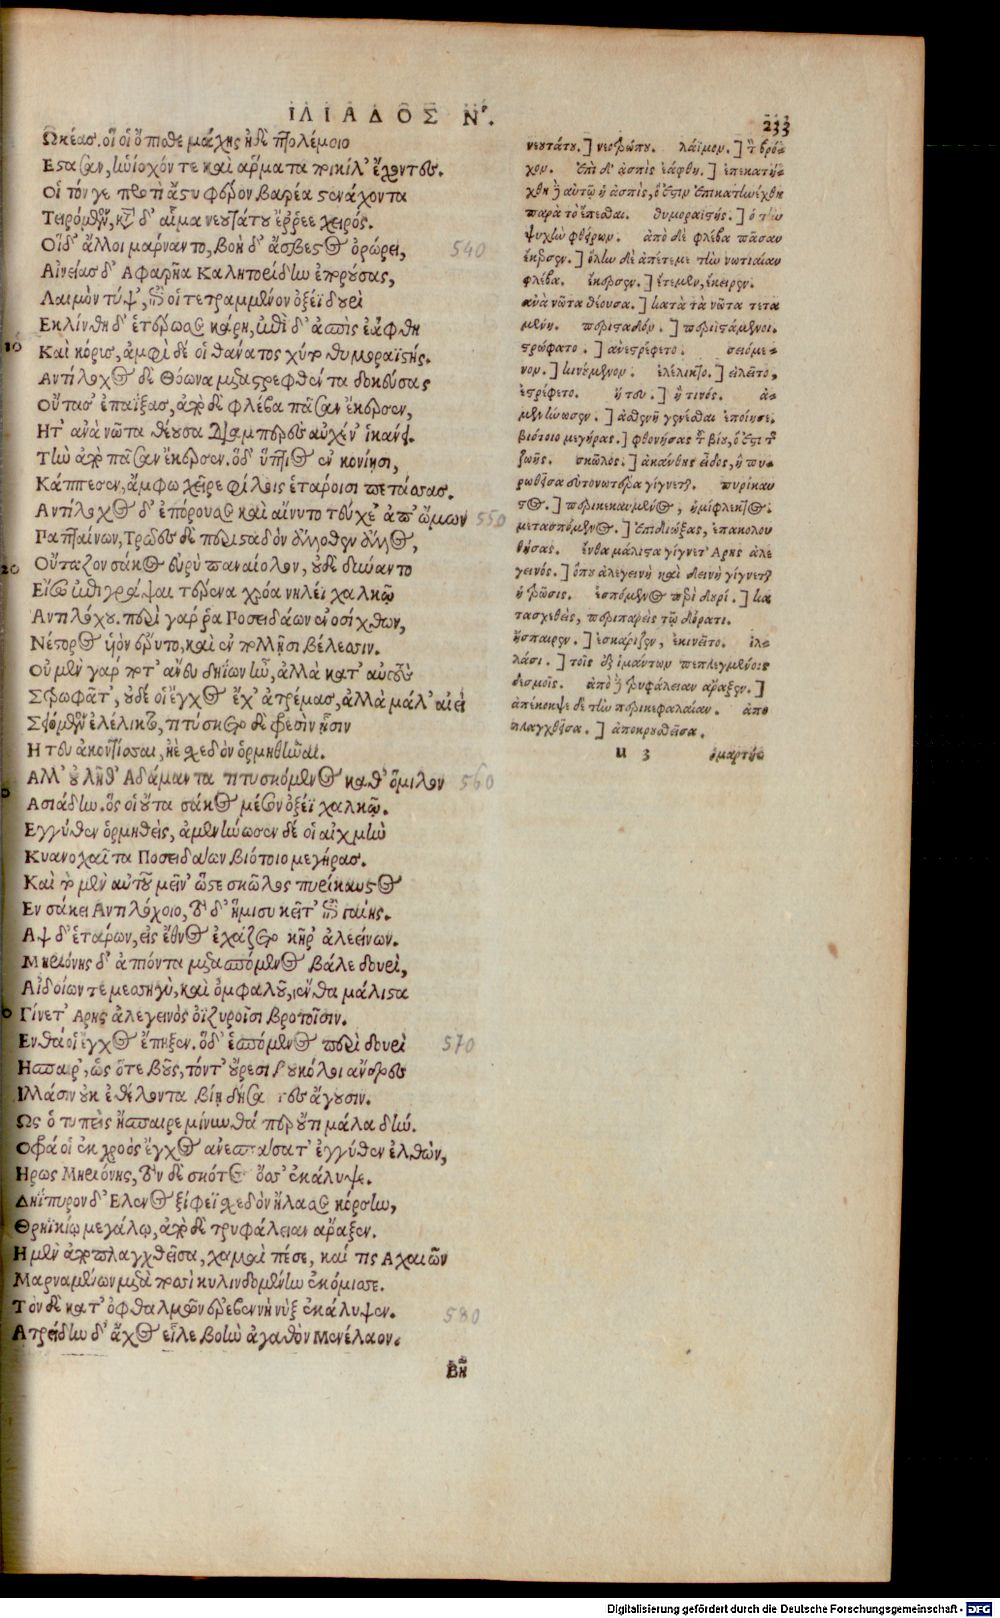 ΙΛΙΑΔΟΣ Ν.
233
Ωκέας. οἵ οἱ ὄπισθε μάχης ἠδὲ πτολέμοιο
Εςασαν, ἡνίοχόν τε καὶ ἅρματα ποικίλ' ἔχοντες.
Οἱ τόν γε προτὶ ἄςυ φέρον βαρέα ςενάχοντα
Τειρόμενον, κατὰ δ' αἷμα νευτάτου ἔρρεε χειρός.
Οἱ δ' ἄλλοι μάρναντο, βοὴ δ' ἄσβεςος ὀρώρει,
540
Αἰνείας δ' Αφαρῆα Καλητορίδην ἐπορούσας,
Λαιμὸν τύψ', ἐπὶ οἷ τετραμμένον ὀξέϊ δουρὶ
Εκλίνθη δ' ἑτέρωσε κάρη, ἐπὶ δ' ἀσπὶς ἑάφθη
Καὶ κόρυς, ἀμφὶ δέ οἱ θάνατος χύτο θυμοραϊςής.
Αντίλοχος δὲ Θόωνα μεταςρεφθέντα δοκεύσας
Οὔτασ' ἐπαΐξας, ἀπὸ δὲ φλέβα πᾶσαν ἔκερσεν,
Ητ' ἀνὰ νῶτα θέουσα διαμπερὲς αὐχέν' ἱκάνει.
Τὴν ἀπὸ πᾶσαν ἔκερσεν. ὅδ' ὕπτιος ἐν κονίῃσι,
Κάππεσεν, ἄμφω χεῖρε φίλοις ἑτάροισι πετάσσας.
Αντίλοχος δ' ἐπόρουσε καὶ αἴνυτο τεύχε' ἀπ' ὤμων
550
Παπταίνων, Τρῶες δὲ περιςαδὸν ἄλλοθεν ἄλλος,
Οὔταζον σάκος εὐρὺ παναίολον, οὐδὲ δύναντο
Εἴσω ἐπιγράψαι τέρενα χρόα νηλέϊ χαλκῷ
Αντιλόχου. περὶ γάρ ῥα Ποσειδάων ἐνοσίχθων,
Νέςορος υἱὸν ἔρυτο, καὶ ἐν πολλῇσι βέλεσιν.
Οὐ μὲν γάρ ποτ' ἄνευ δηΐων ἦν, ἀλλὰ κατ' αὐτοὺς
Στρωφᾶτ', οὐδέ οἱ ἔγχος ἔχ' ἀτρέμας, ἀλλὰ μάλ' αἰεὶ
Σειόμενον ἐλέλικτο, τιτύσκετο δὲ φρεσὶν ᾗσιν
Η τευ ἀκοντίσσαι, ἠὲ σχεδὸν ὁρμηθῆναι.
Αλλ' οὐ λῆθ' Αδάμαντα τιτυσκόμενος καθ' ὅμιλον
560
Ασιάδην. ὅς οἱ οὖτα σάκος μέσον ὀξέϊ χαλκῷ.
Εγγύθεν ὁρμηθεὶς, ἀμενήνωσεν δέ οἱ αἰχμὴν
Κυανοχαῖτα Ποσειδάων βιότοιο μεγήρας.
Καὶ τὸ μὲν αὐτοῦ μεῖν' ὥςε σκῶλος πυρίκαυςος
Εν σάκει Αντιλόχοιο, τὸ δ' ἥμισυ κεῖτ' ἐπὶ γαίης.
Αψ δ' ἑτάρων, εἰς ἔθνος ἐχάζετο κῆρ' ἀλεείνων.
Μηριόνης δ' ἀπιόντα μετασπόμενος βάλε δουρὶ,
Αἰδοίων τε μεσηγὺ, καὶ ὀμφαλοῦ, ἔνθα μάλιςα
Γίνετ' Αρης ἀλεγεινὸς ὀϊζυροῖσι βροτοῖσιν.
Ενθά οἱ ἔγχος ἔπηξεν. ὅδ' ἑσπόμενος περὶ δουρὶ
570
Ησπαιρ', ὡς ὅτε βοῦς, τόντ' οὔρεσι βουκόλοι ἄνδρες
Ιλλάσιν οὐκ ἐθέλοντα βίῃ δήσαντες ἄγουσιν.
Ως ὁ τυπεὶς ἤσπαιρε μίνυνθά περ οὔτι μάλα δήν.
Οφρά οἱ ἐκ χροὸς ἔγχος ἀνεσπάσατ' ἐγγύθεν ἐλθὼν,
Ηρως Μηριόνης, τὸν δὲ σκότος ὄσσ' ἐκάλυψε.
Δηΐπυρον δ' Ελενος ξίφεϊ σχεδὸν ἤλασε κόρσην,
Θρηϊκίῳ μεγάλῳ, ἀπὸ δὲ τρυφάλειαν ἄραξεν.
Η μὲν ἀποπλαγχθεῖσα, χαμαὶ πέσε, καί τις Αχαιῶν
Μαρναμένων μετὰ ποσὶ κυλινδομένην ἐκόμισσε.
Τὸν δὲ κατ' ὀφθαλμῶν ἐρεβεννὴ νὺξ ἐκάλυψεν.
580
Ατρείδην δ' ἄχος εἷλε βοὴν ἀγαθὸν Μενέλαον.
Βῆ
10
20
νευτάτου.] νεοτρώτου. λαίμον.] τὸ βρόγ-
χον. ἐπὶ δ' ἀσπὶς ἑάφθη.] ἐπεκατή-
χθη αὐτῷ ἡ ἀσπὶς, ὅ ἐςιν ἐπικατηνέχθη
παρὰ τὸ ἕπεσθαι. θυμοραϊςής.] ὁ τὴν
ψυχὴν φθείρων. ἀπὸ δὲ φλέβα πᾶσαν
ἔκερσεν.] ὅλην δὲ ἀπέτεμε τὴν νωτιαίαν
φλέβα. ἔκερσεν.] ἔτεμεν, ἔκειρεν.
ἀνὰ νῶτα θέουσα.] κατὰ τὰ νῶτα τετα
μένη. περιςαδόν.] περιϊςάμενοι.
ςρώφατο.] ἀνεςρέφετο. σειόμε-
νον.] κινούμενον. ἐλέλικτο.] εἱλεῖτο,
ἐςρέφετο. ἤ τευ.] ἤ τινός. ἀ-
μενήνωσεν.] ἀσθενῆ γενέσθαι ἐποίησε.
βιότοιο μεγήρας.] φθονήσας τοῦ βίου, ὅ ἐςι τῆς
ζωῆς. σκῶλος.] ἀκάνθης εἶδος, ἣ πυ-
ρωθεῖσα εὐτονωτέρα γίγνεται. πυρίκαυ
ςος.] περικεκαυμένος, ἡμίφλεκτος.
μετασπόμενος.] ἐπιδιώξας, ἐπακολου
θήσας. ἔνθα μάλιςα γίγνετ' Αρης ἀλε
γεινός.] ὅπου ἀλεγεινὴ καὶ δεινὴ γίγνεται
ἡ τρῶσις. ἑσπόμενος περὶ δουρί.] κα
τασχεθεὶς, περιπαρεὶς τῷ δόρατι.
ἤσπαιρεν.] ἐσκάριζεν, ἐκινεῖτο. ἰλ-
λάσι.] τοῖς ἐξ ἱμάντων πεπλεγμένοις
δεσμοῖς. ἀπὸ τρυφάλειαν ἄραξεν.]
ἀπέκοψε δὲ τὴν περικεφαλαίαν. ἀπο
πλαγχθεῖσα.] ἀποκρουσθεῖσα.
u 3
ὁμαρτή-
Digitalisierung gefördert durch die Deutsche Forschungsgemeinschaft - DFG